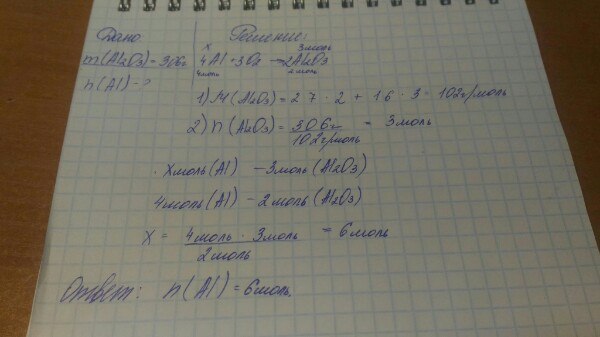 Дано
Решение:
m(Al2O3)=306г
n(Al)-?
x 3моль
4Al+3O2→2Al2O3
4моль 2моль
1) M(Al2O3)=27·2+16·3=102г/моль
2) n(Al2O3)=306г/102г/моль=3моль
xмоль(Al)-3моль(Al2O3)
4моль(Al)-2моль(Al2O3)
x=4моль·3моль/2моль=6моль
Ответ: n(Al)=6моль.